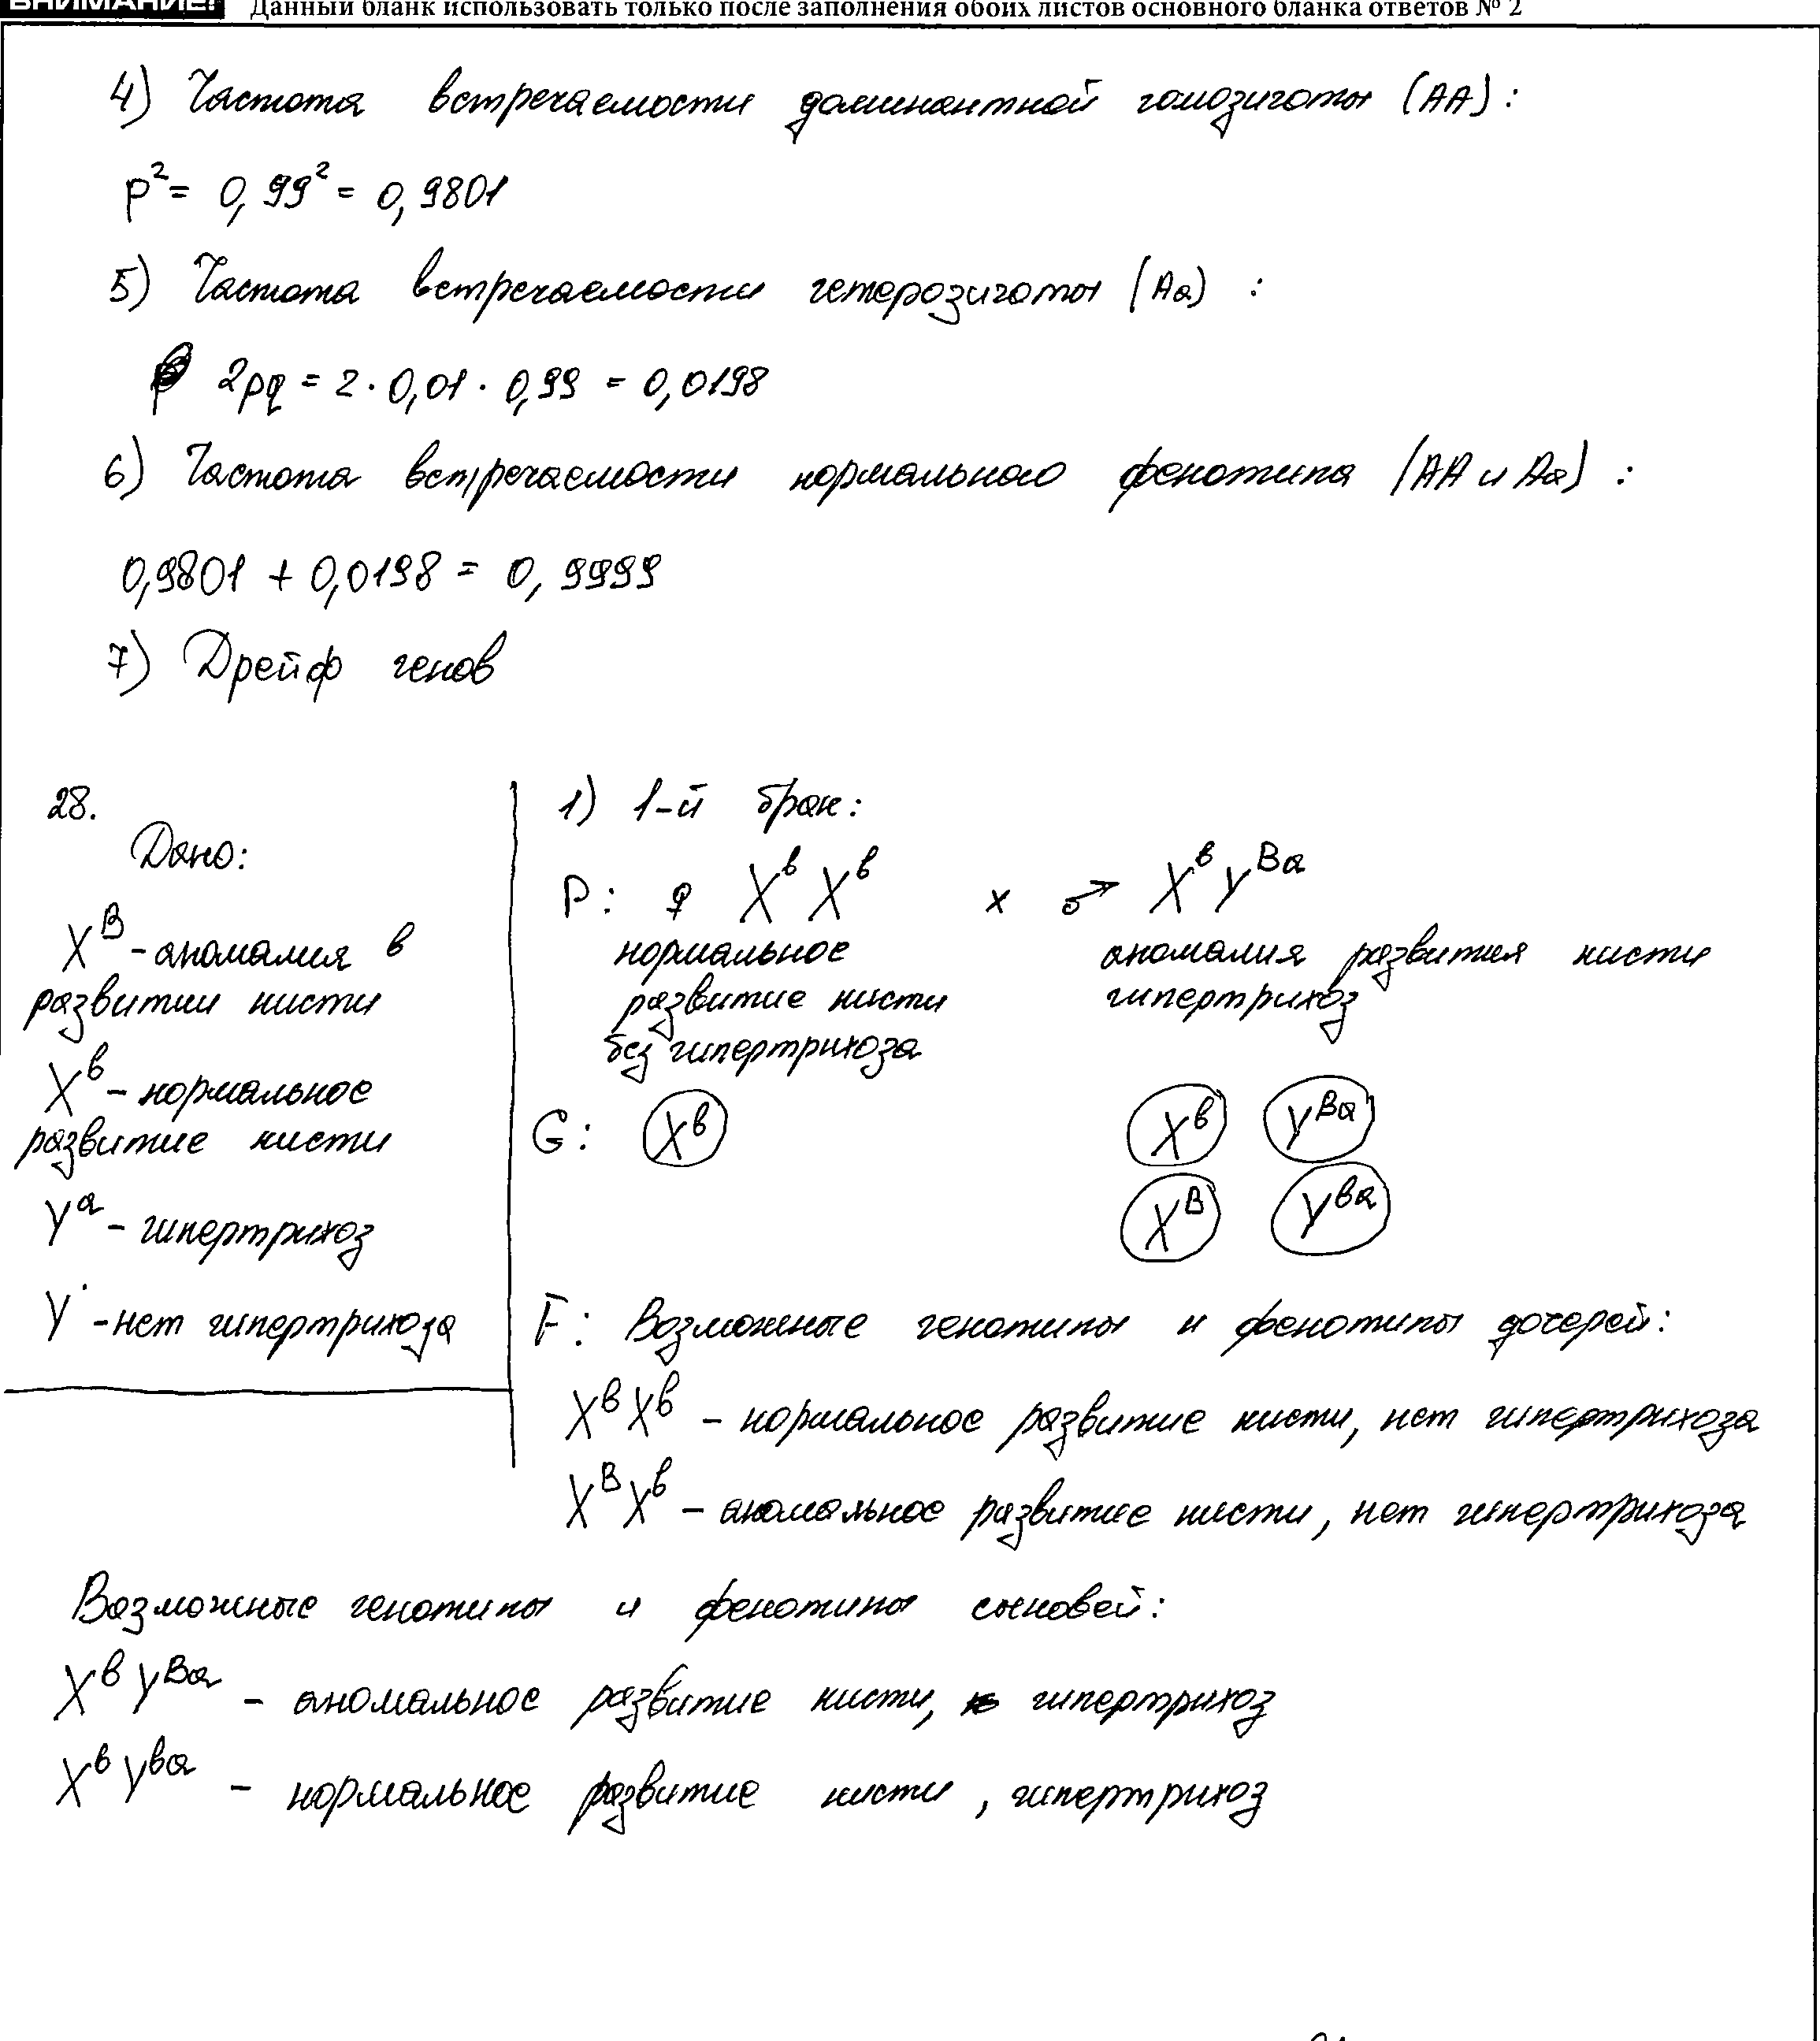 ВНИМАНИЕ! Данный бланк использовать только после заполнения обоих листов основного бланка ответов № 2
4) Частота встречаемости доминантной гомозиготы (AA) :
p² = 0,99² = 0,9801
5) Частота встречаемости гетерозиготы (Aa) :
2pq = 2 · 0,01 · 0,99 = 0,0198
6) Частота встречаемости нормального фенотипа (AA и Aa) :
0,9801 + 0,0198 = 0,9999
7) Дрейф генов
28.
Дано:
X^B - аномалия в
развитии кисти
X^b - нормальное
развитие кисти
Y^a - гипертрихоз
Y - нет гипертрихоза
1) 1-й брак:
P: ♀ X^b X^b x ♂ X^b Y^Ba
нормальное аномалия развития кисти
развитие кисти гипертрихоз
без гипертрихоза
G: X^b X^b Y^Ba
X^B Y^ba
F: Возможные генотипы и фенотипы дочерей:
X^b X^b - нормальное развитие кисти, нет гипертрихоза
X^B X^b - аномальное развитие кисти, нет гипертрихоза
Возможные генотипы и фенотипы сыновей:
X^b Y^Ba - аномальное развитие кисти, гипертрихоз
X^b Y^ba - нормальное развитие кисти, гипертрихоз